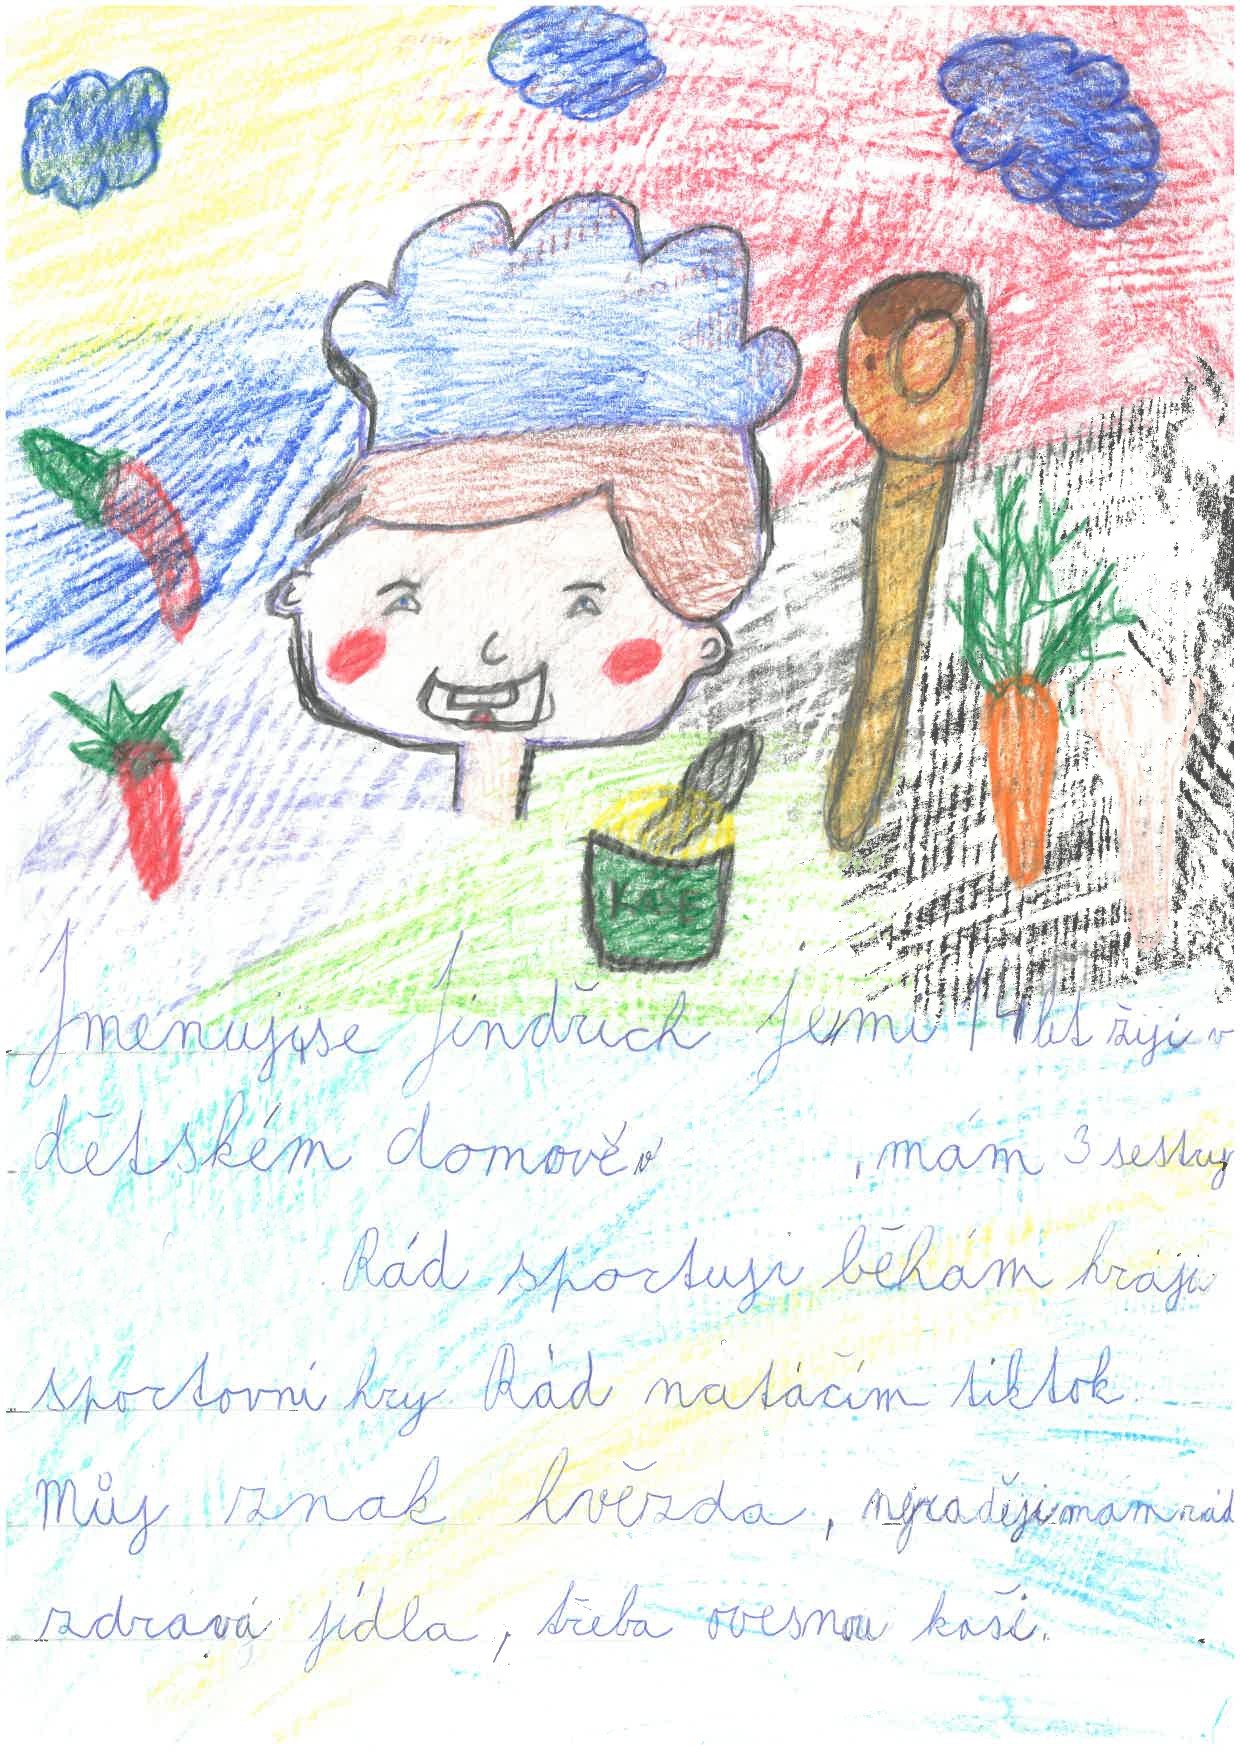 KAŠE
Jmenuji se Jindřich Je mi 14 let žiji v
dětském domově v , mám 3 sestry
Rád sportuji běhám hraji
sportovní hry Rád natáčím tiktok.
Můj znak hvězda, nejraději mám rád
zdravá jídla, třeba ovesnou kaši.